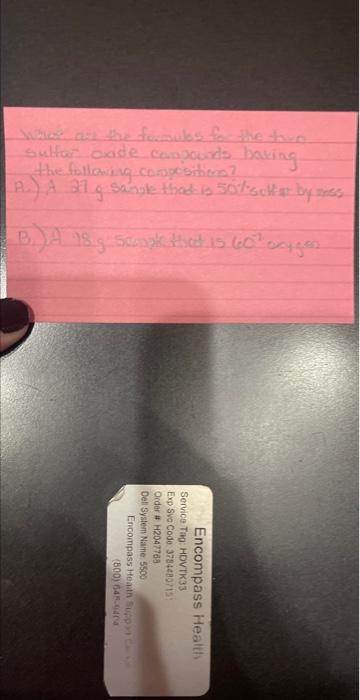 What are the formulas for the two
sulfur oxide compounds having
the following compositions?
A.) A 27 g sample that is 50% sulfur by mass
B.) A 18 g sample that is 60% oxygen
Encompass Health
Service Tag: HDVTK33
Exp Svc Code
Order # H2047768
Dell System Name: 5500
Encompass Health Support
(800)